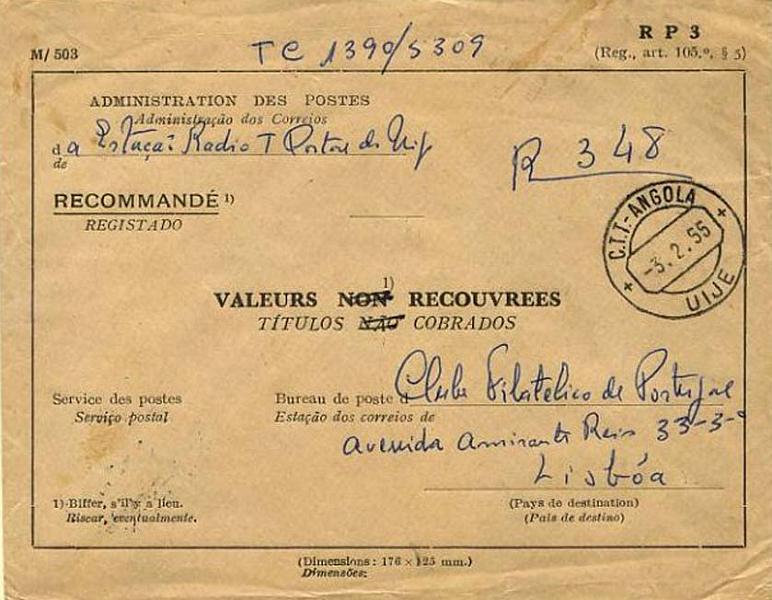 M/ 503
TC 1390/5309
R P 3
(Reg., art. 105.º, § 5)
ADMINISTRATION DES POSTES
Administração dos Correios
da Estação Radio T Postal do Uíge
de
R 348
RECOMMANDÉ 1)
REGISTADO
C.T.T.-ANGOLA
-3.2.55
UIJE
1)
VALEURS NON RECOUVREES
TÍTULOS NÃO COBRADOS
Service des postes
Serviço postal
Bureau de poste d Clube Filatélico de Portugal
Estação dos correios de
Avenida Amirante Reis 33-3-º
Lisbôa
1) Biffer, s'il y a lieu.
Riscar, eventualmente.
(Pays de destination)
(País de destino)
(Dimensions: 176 × 125 mm.)
Dimensões: